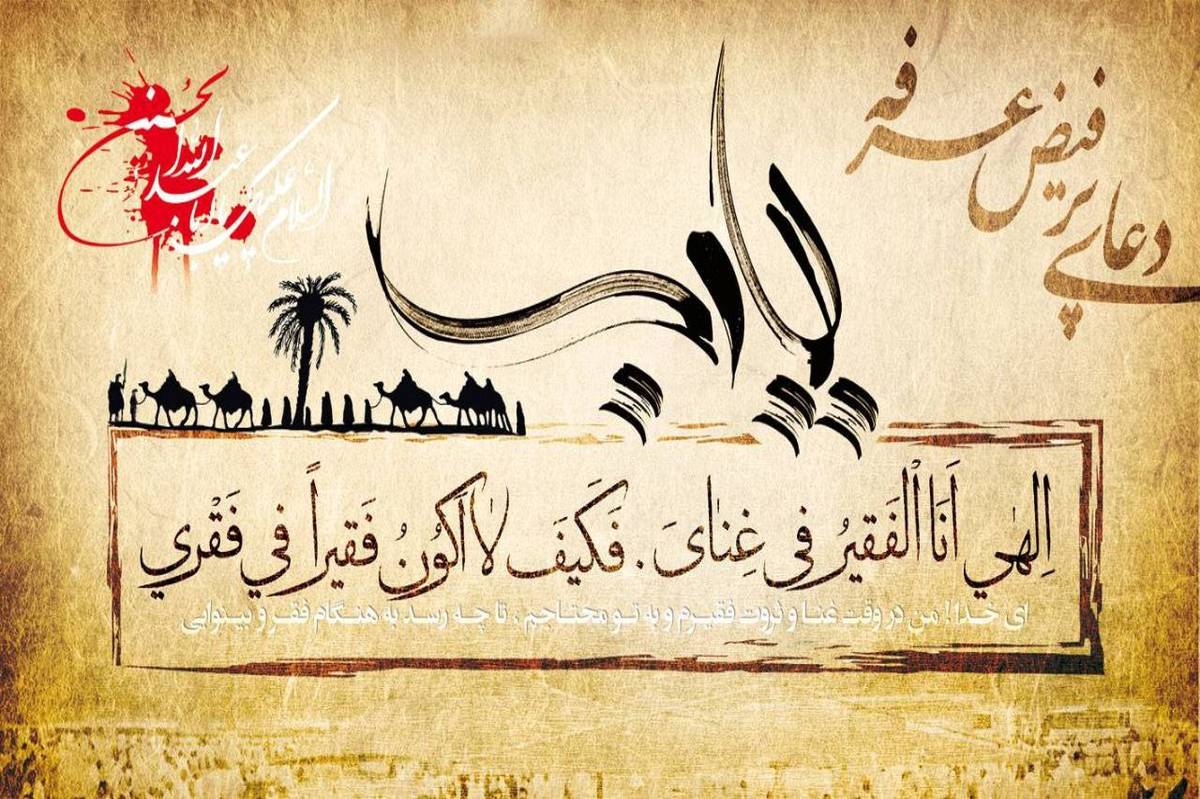 دعای پر فیض عرفه
السلام علیک یا ابا عبدالله الحسین
یا رب
اِلهٰي اَنَا الْفَقیرُ فی غِنٰایَ . فَکَیفَ لٰا اَکُونُ فَقیراً في فَقْري
ای خدا! من در وقت غنا و ثروت فقیرم و به تو محتاجم . تا چه رسد به هنگام فقر و بینوایی